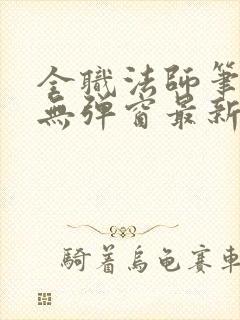 全職法師筆
無彈窗最新
騎着烏龜賽車